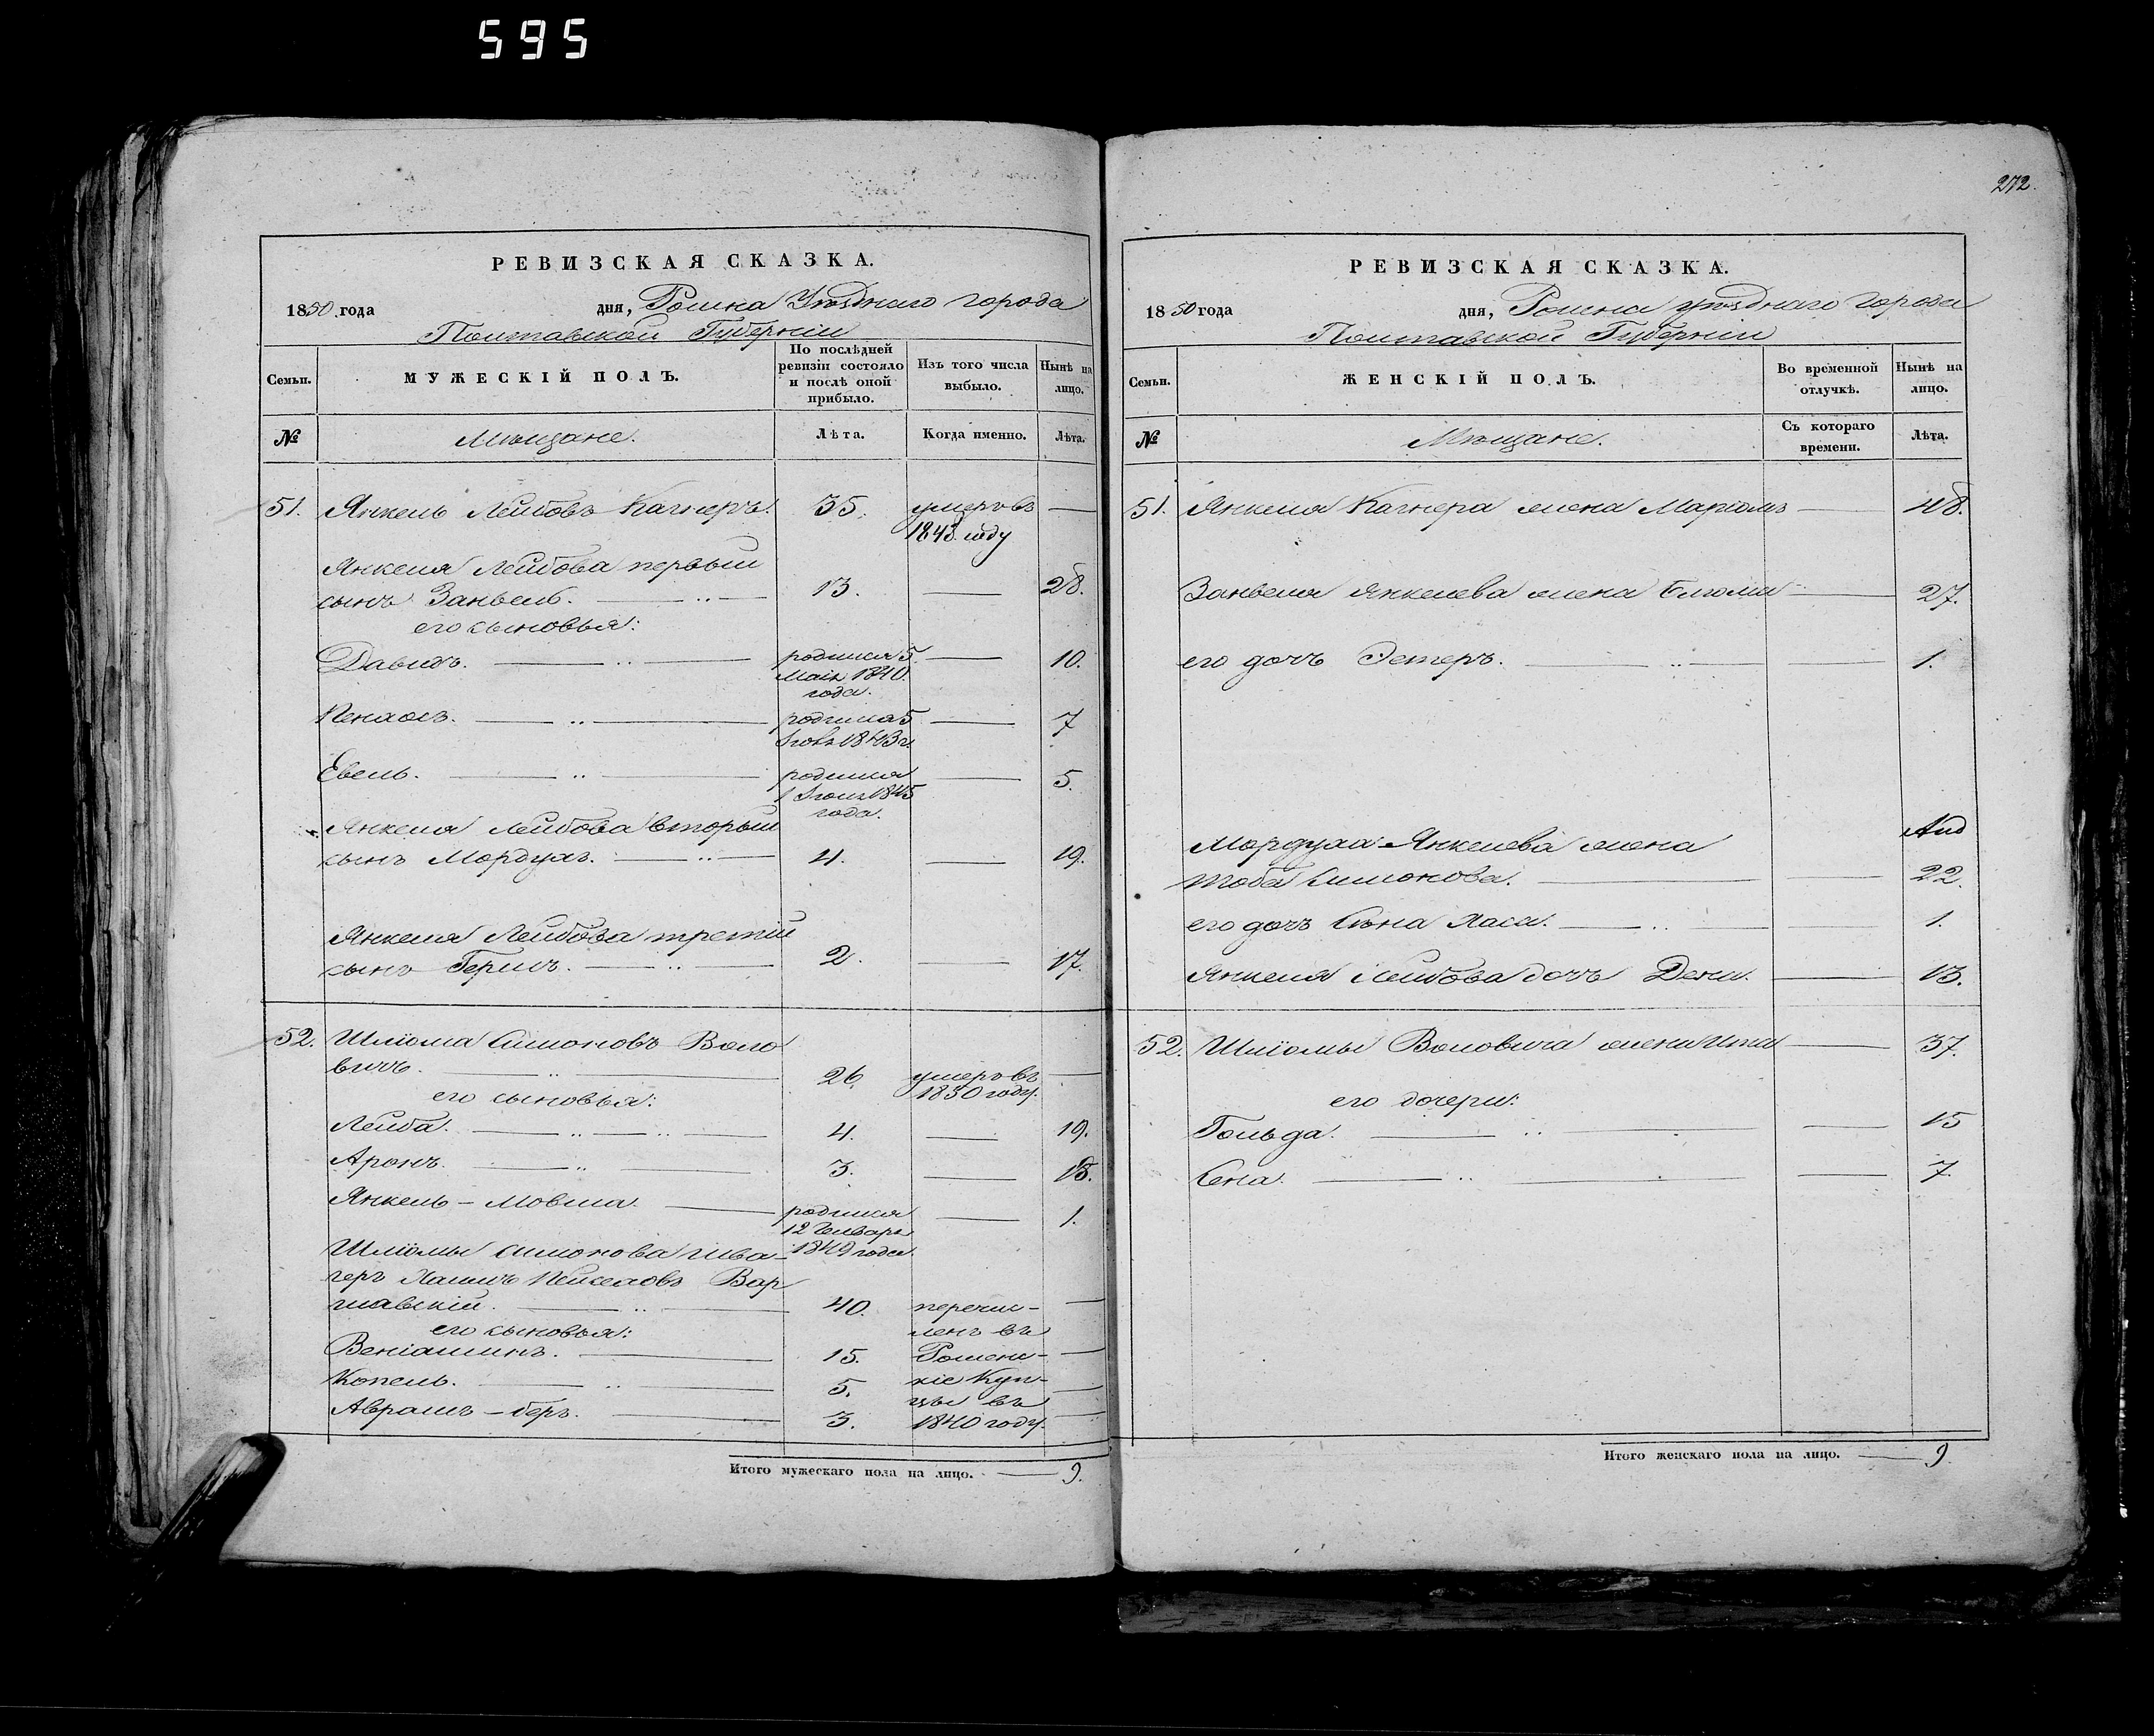 595
272.
РЕВИЗСКАЯ СКАЗКА.
1850 года дня, Ромна Уѣзднаго города
Полтавской Губерніи
Семьи.
МУЖЕСКІЙ ПОЛЪ.
По послѣдней ревизіи состояло и послѣ оной прибыло.
Изъ того числа выбыло.
Нынѣ на лицо.
№
Мѣщане.
Лѣта.
Когда именно.
Лѣта.
51. Янкель Лейбовъ Кагнеръ. 35. умеръ въ
1843 году
Янкеля Лейбова первый
сынъ Занвель. 13. 28.
его сыновья:
Давидъ. родился 5 10.
Маія 1840
года.
родился 5 7
1843 г.
Евель. родился 5.
1 1845
года.
Янкеля Лейбова вторый
сынъ Мордухъ. 4. 19.
Янкеля Лейбова третій
сынъ Гершъ. 2. 17.
52. Шліома Симоновъ Воло
вичъ. 26. умеръ въ
его сыновья: 1850 году.
Лейба. 4. 19.
Аронъ. 3. 18.
Янкель-Мовша. родился 1.
12 Генваря
Шліомы Симонова шва- 1849 года.
геръ Хаимъ Пейсаховъ Вар
шавскій. 40. перечис-
его сыновья: ленъ въ
Веніаминъ. 15. Роменс-
Копель. 5. кіе Куп-
цы въ
Аврамъ-беръ. 3. 1840 году.
Итого мужескаго пола на лицо. 9.
РЕВИЗСКАЯ СКАЗКА.
1850 года дня, Ромна уѣзднаго города
Полтавской Губерніи
Семьи.
ЖЕНСКІЙ ПОЛЪ.
Во временной отлучкѣ.
Нынѣ на лицо.
№
Мѣщане.
Съ котораго времени.
Лѣта.
51. Янкеля Кагнера жена Маріомъ 48.
Занвеля Янкелева жена 27.
его дочь Эстеръ. 1.
Мордуха Янкелева жена
Тоба Симонова. 22.
его дочь Сѣна Хаса. 1.
Янкеля Лейбова дочь 13.
52. Шліомы Воловича жена Ита 37.
его дочери:
Гольда. 15
Сена. 7.
Итого женскаго пола на лицо. 9